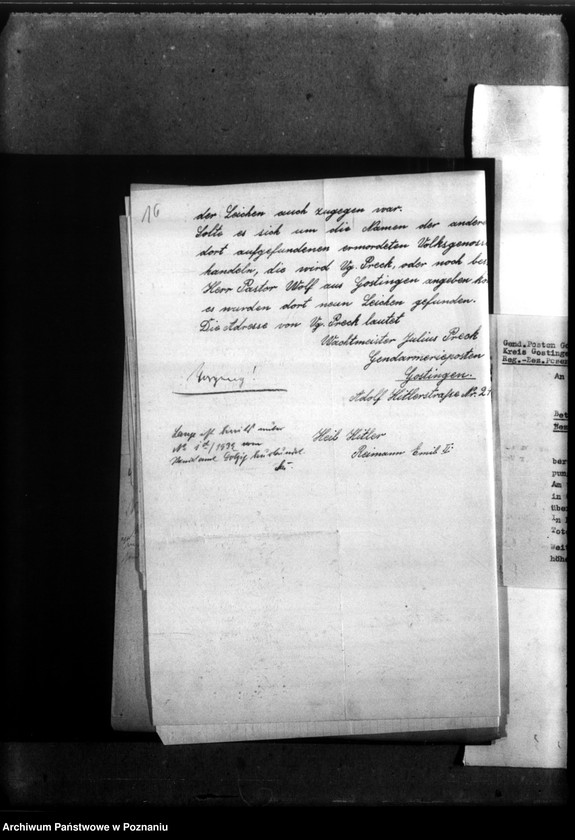 16
der Leichen auch zugegen war.
Solte es sich um die Namen der andere
dort aufgefundenen ermordeten Volksgenosse
handeln, die wird Vg. Preck, oder noch bes
Herr Pastor Wolf aus Gostingen angeben kö
es wurden dort neun Leichen gefunden.
Die Adresse von Vg. Preck lautet
Wachtmeister Julius Preck
Gendarmerieposten
Gostingen.
Adolf Hitlerstraße Nr. 21
Heil Hitler
Reimann Emil
Gend.Posten Go
Kreis Gostinge
Reg.-Bez.Posen
An
Bet
ber
pom
An
in
über
In
Tote
Weit
höhe
Archiwum Państwowe w Poznaniu